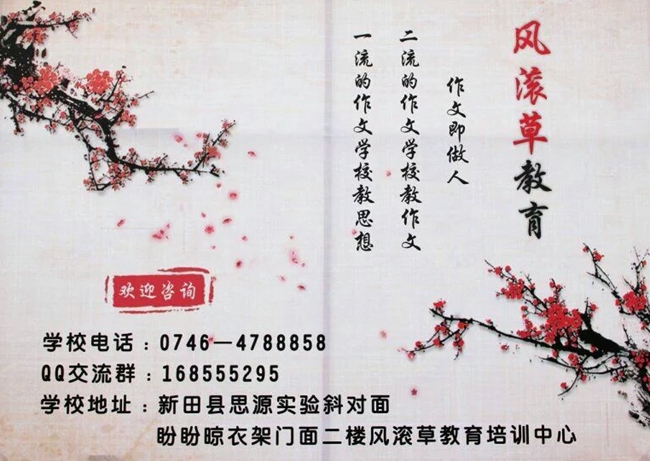 风滚草教育
作文即做人
二流的作文学校教作文
一流的作文学校教思想
欢迎咨询
学校电话：0746—4788858
QQ交流群：168555295
学校地址：新田县思源实验斜对面
盼盼晾衣架门面二楼风滚草教育培训中心